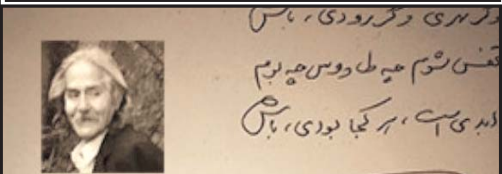 وگر نهری وگر رودی، باش
قفس نشوم چه طاووس چه بوم
ابدی است، هر کجا بودی، باش